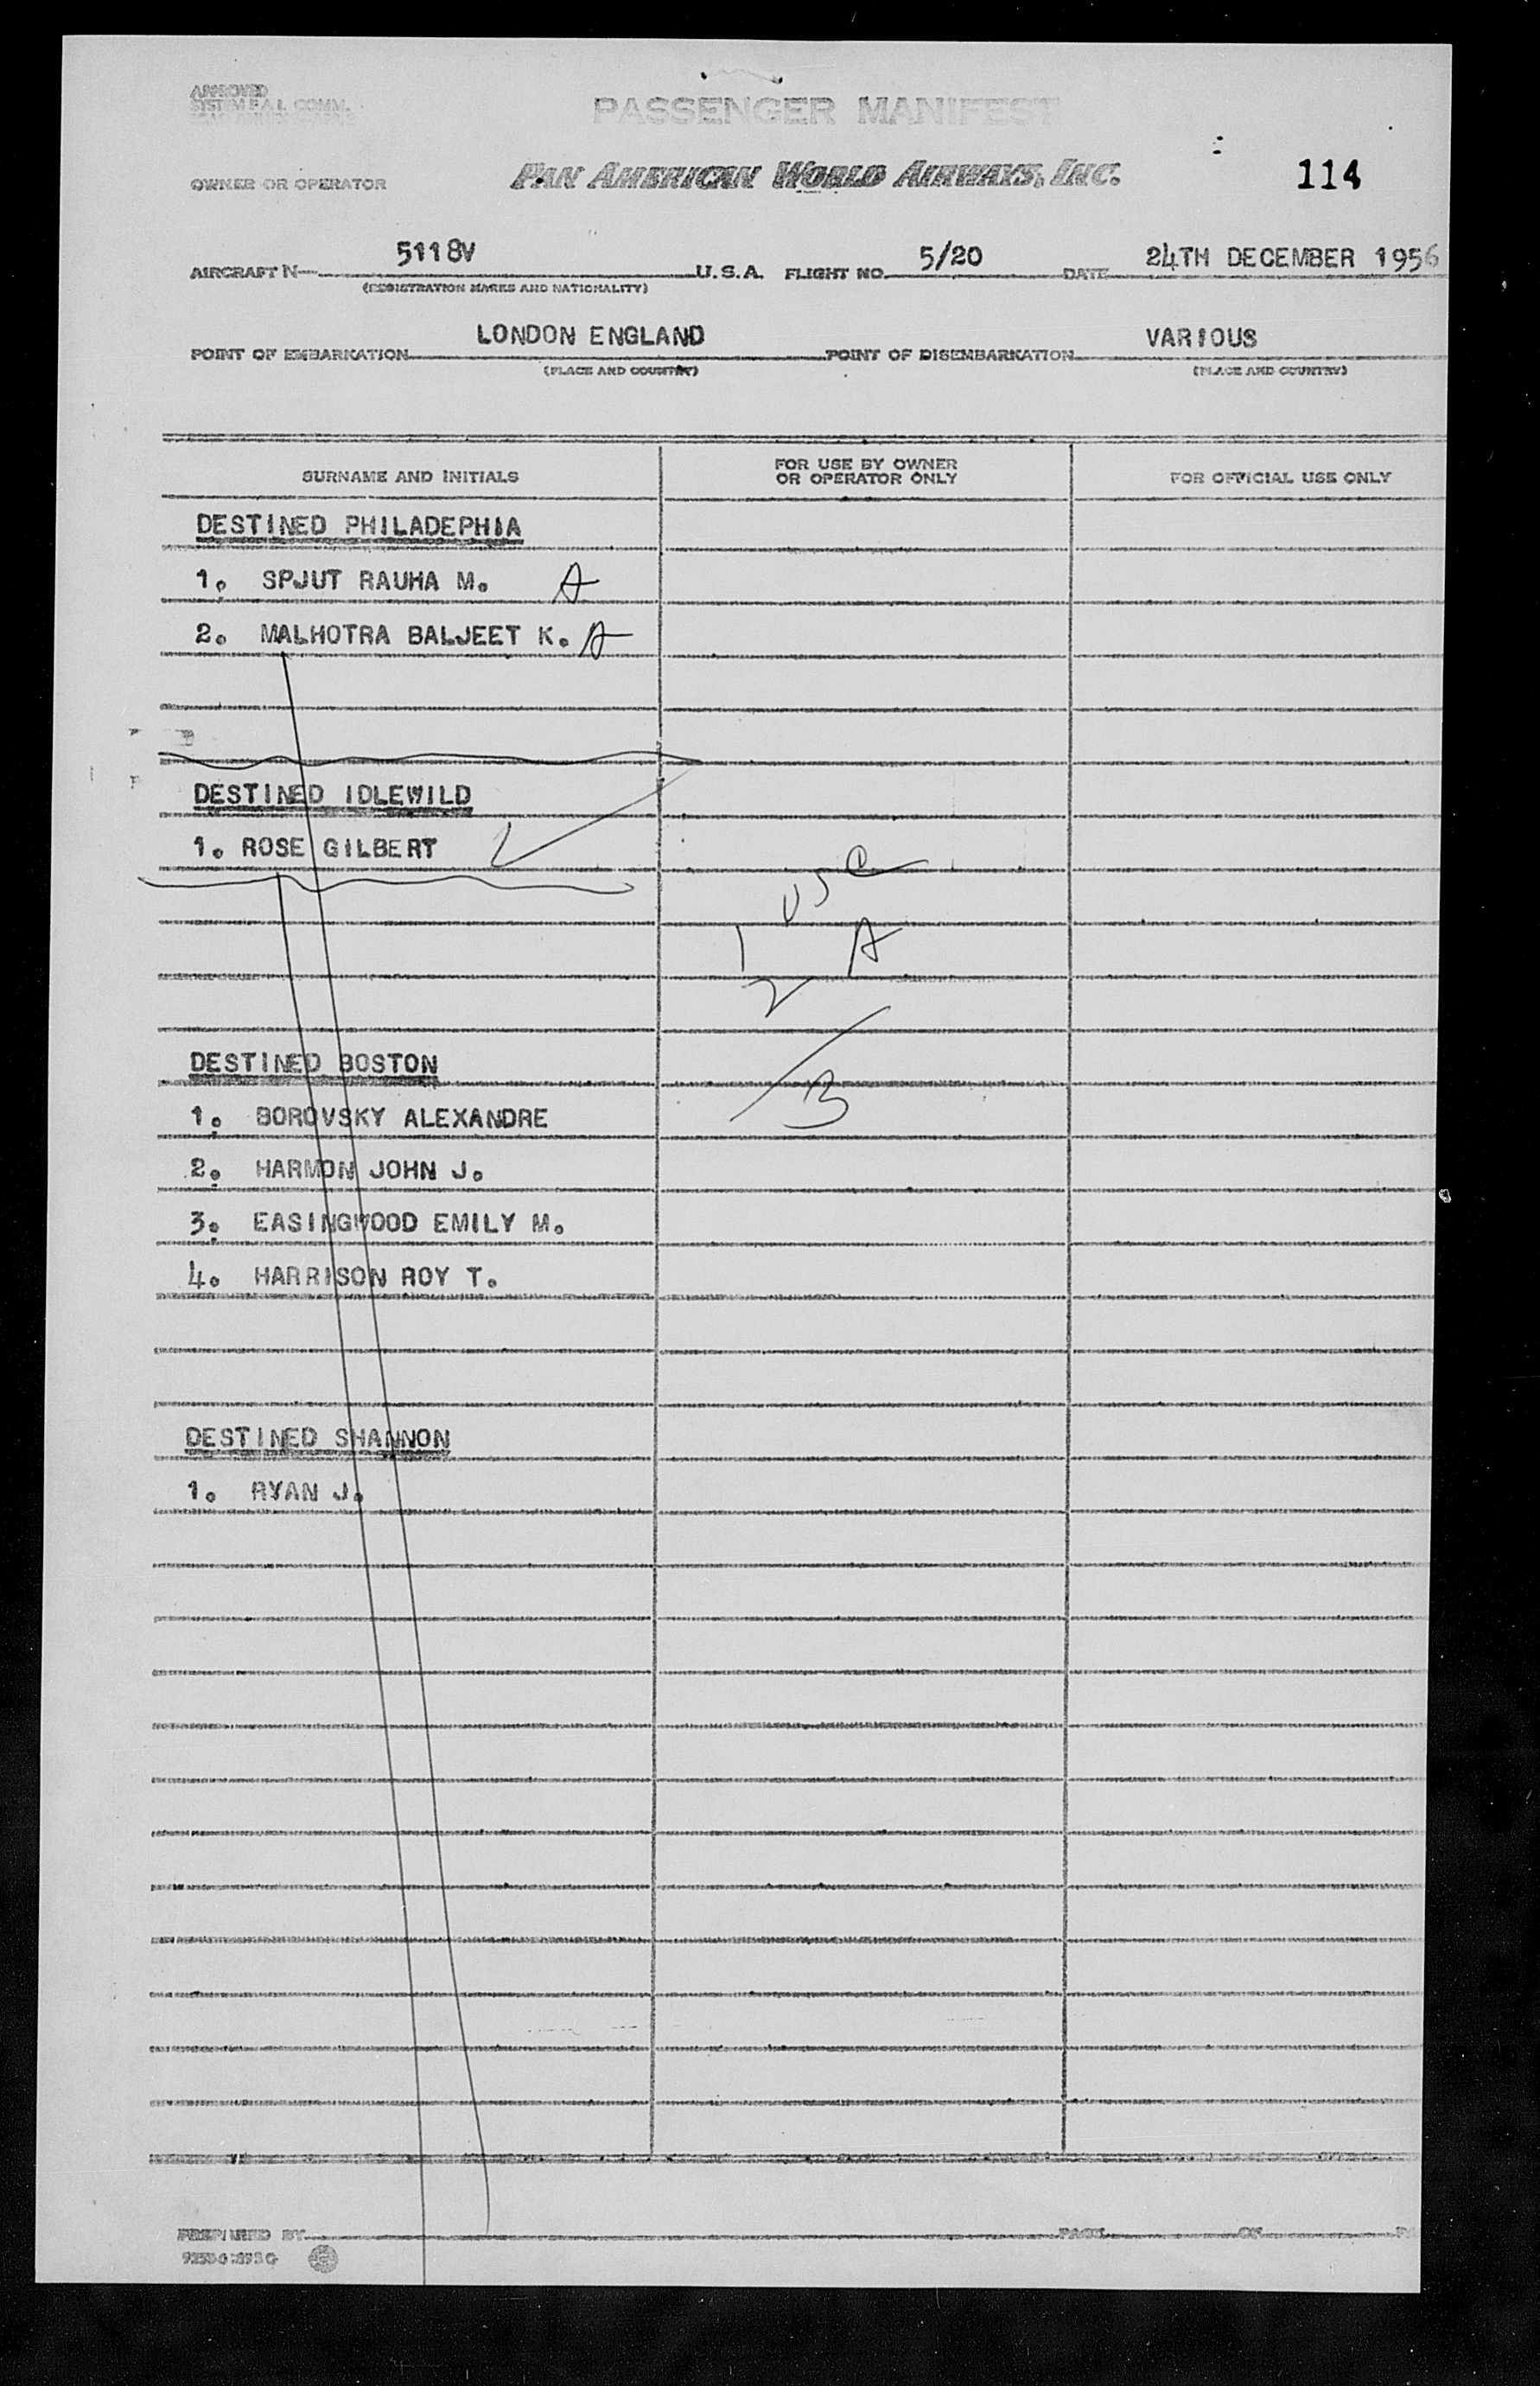 APPROVED
SYSTEM F.A.I. COMM.
PASSENGER MANIFEST
OWNER OR OPERATOR PAN AMERICAN WORLD AIRWAYS, INC. 114
AIRCRAFT N— 5118V U.S.A. FLIGHT NO. 5/20 DATE 24TH DECEMBER 1956
(REGISTRATION MARKS AND NATIONALITY)
POINT OF EMBARKATION LONDON ENGLAND POINT OF DISEMBARKATION VARIOUS
(PLACE AND COUNTRY) (PLACE AND COUNTRY)
SURNAME AND INITIALS FOR USE BY OWNER OR OPERATOR ONLY FOR OFFICIAL USE ONLY
DESTINED PHILADEPHIA
1. SPJUT RAUHA M. A
2. MALHOTRA BALJEET K. A
DESTINED IDLEWILD
1. ROSE GILBERT
USC
1 A
2
3
DESTINED BOSTON
1. BOROVSKY ALEXANDRE
2. HARMON JOHN J.
3. EASINGWOOD EMILY M.
4. HARRISON ROY T.
DESTINED SHANNON
1. RYAN J.
PREPARED BY PAGE OF